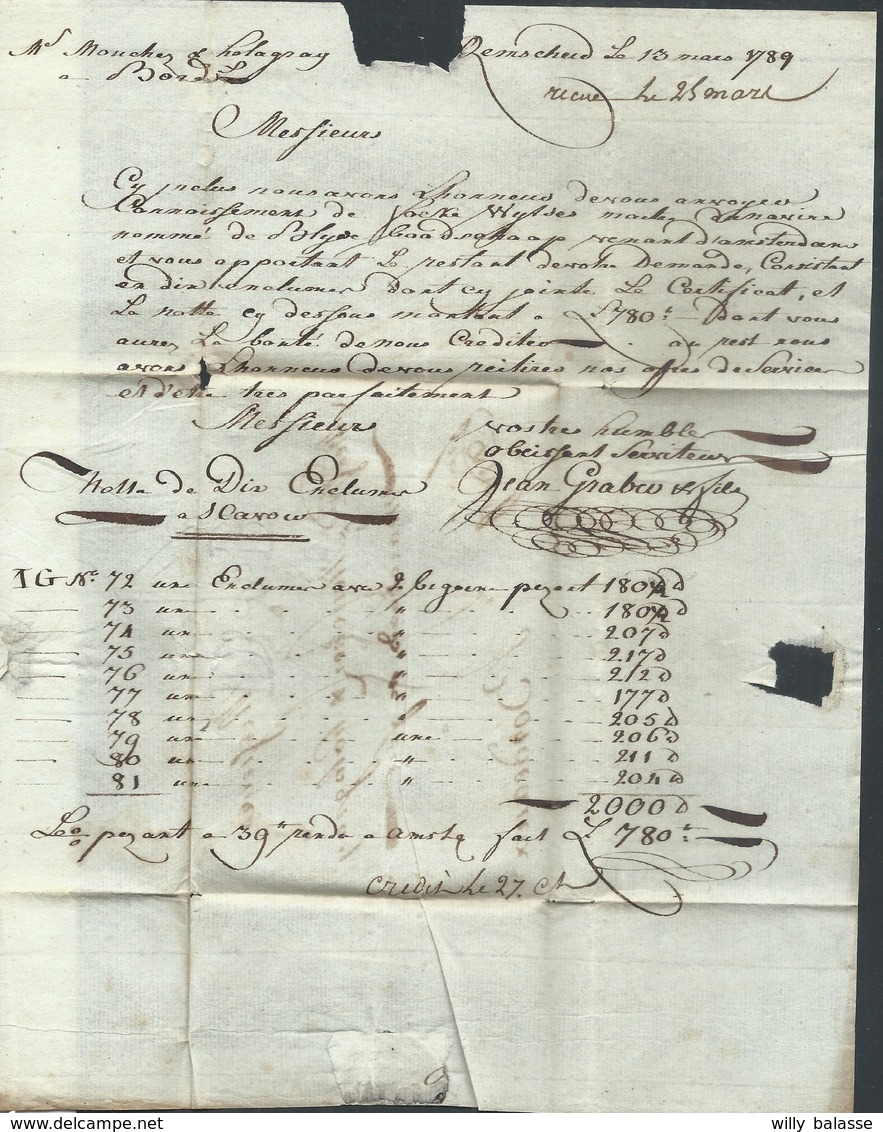 Mrs Mouchez & holagray Remscheid Le 13 mars 1789
a Bord
recue le 25 mars
Messieurs
Cy inclus nous avons Lhonneur devous envoyer
Connoissement de Wytses navire
nommé de Blyde Boodschaap venant d'amsterdam
et vous apportant Le restant devotre Demande, Consistant
en dix enclumes dont cy jointe Le Certificat, et
La notte cy dessous montant a £ 780:" Dont vous
aurez La bonté de nous Crediter au rest nous
avons Lhonneur devous reitirer nos offres de Service
et d'etre tres parfaitement
Messieurs vostre humble
obeissent Serviteur
Jean Grabw & fils
Notta de Dix Enclumes
a Scavoir
IG No. 72 une Enclumes avec 2 begorne pezent 180 1/2 d
73 une " 180 1/2 d
74 une " 207 d
75 une " 217 d
76 une " 212 d
77 une " 177 d
78 une " 205 d
79 une une 206 d
80 une " 211 d
81 une " 204 d
2000 d
pezant a 39 rendu a Amstm fait £ 780:"
Credit le 27. Ct
willy balasse